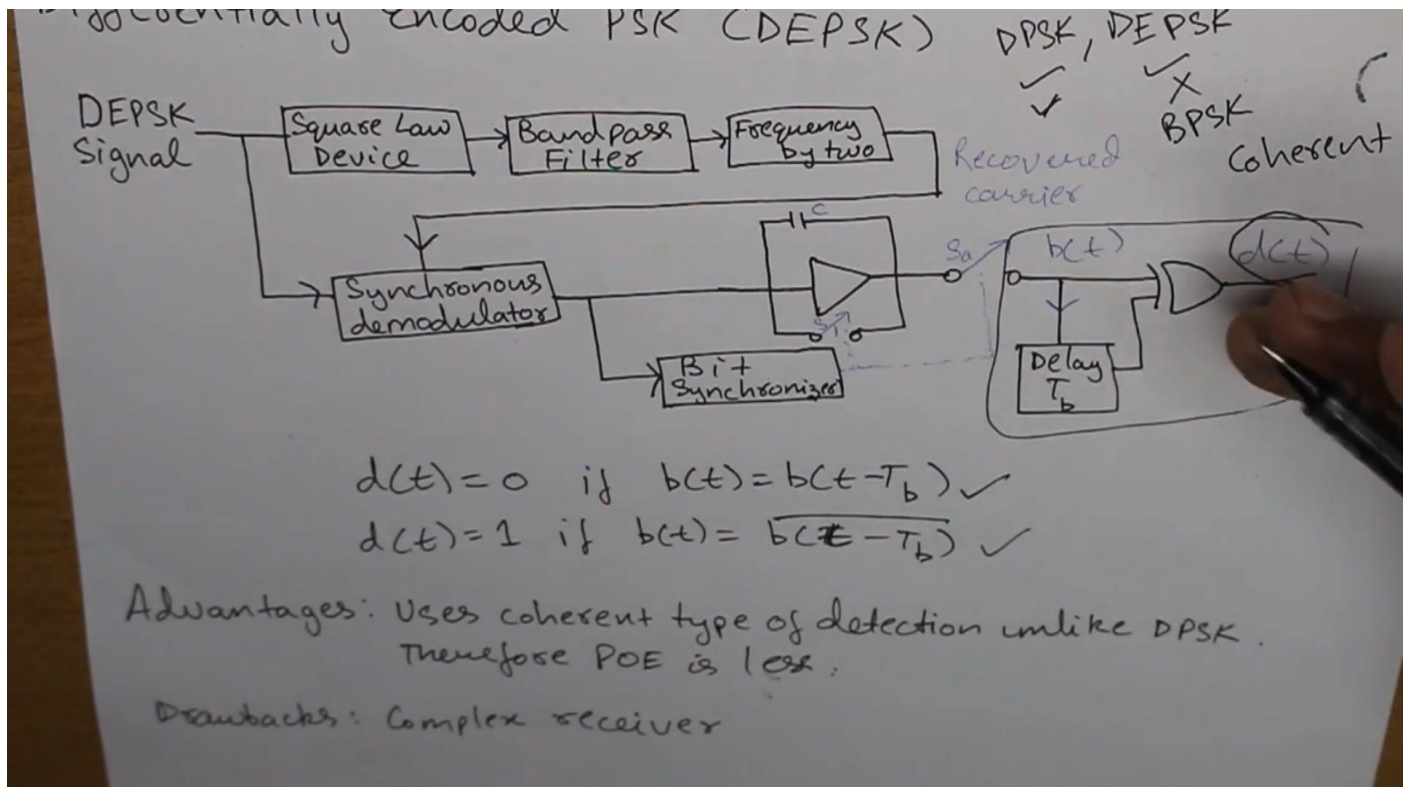 Differentially Encoded PSK (DEPSK)
DPSK, DEPSK
BPSK
Coherent
DEPSK
Signal
Square Law
Device
Bandpass
Filter
Frequency
by two
Recovered
carrier
Synchronous
demodulator
C
S1
Bit
Synchronizer
Sa
b(t)
d(t)
Delay
T_b
d(t)=0 if b(t)=b(t-T_b) ✓
d(t)=1 if b(t)= \overline{b(t-T_b)} ✓
Advantages: Uses coherent type of detection unlike DPSK.
Therefore POE is less.
Drawbacks: Complex receiver